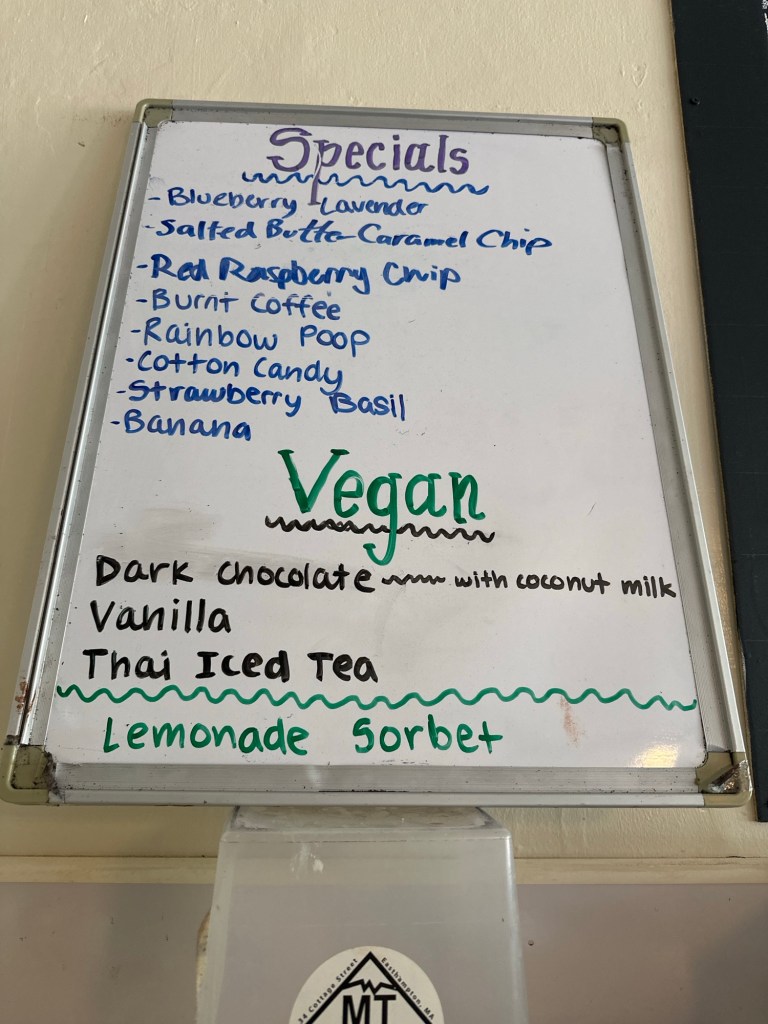 Specials
-Blueberry Lavender
-Salted Butter Caramel Chip
-Red Raspberry Chip
-Burnt Coffee
-Rainbow Poop
-Cotton Candy
-Strawberry Basil
-Banana
Vegan
Dark chocolate with coconut milk
Vanilla
Thai Iced Tea
Lemonade Sorbet
34 Cottage Street Easthampton, MA
MT